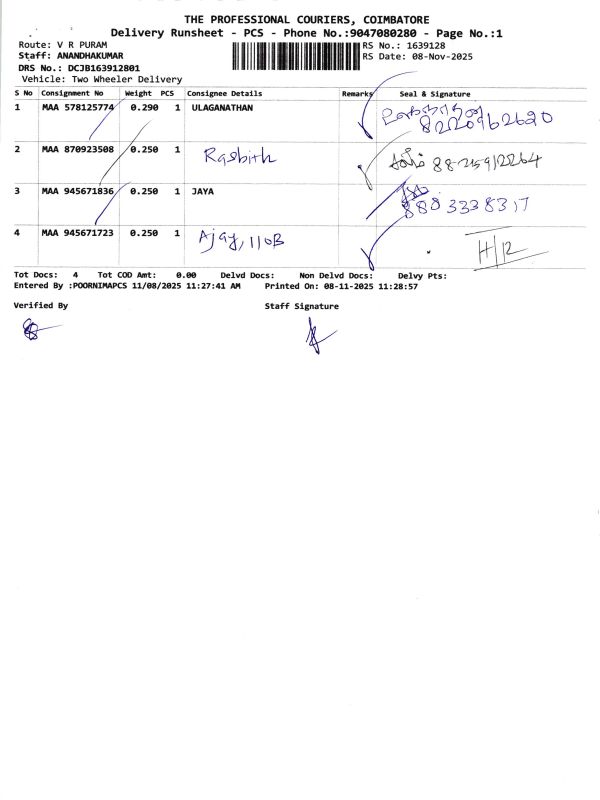 THE PROFESSIONAL COURIERS, COIMBATORE
Delivery Runsheet - PCS - Phone No.:9047080280 - Page No.:1
Route: V R PURAM
RS No.: 1639128
Staff: ANANDHAKUMAR
RS Date: 08-Nov-2025
DRS No.: DCJB163912801
Vehicle: Two Wheeler Delivery
S No Consignment No Weight PCS Consignee Details Remarks Seal & Signature
1 MAA 578125774 0.290 1 ULAGANATHAN உலகநாதன்
8220962620
2 MAA 870923508 0.250 1 Rasbith
3 MAA 945671836 0.250 1 JAYA
888 3338317
4 MAA 945671723 0.250 1 Ajay, 110B H/R
Tot Docs: 4 Tot COD Amt: 0.00 Delvd Docs: Non Delvd Docs: Delvy Pts:
Entered By :POORNIMAPCS 11/08/2025 11:27:41 AM Printed On: 08-11-2025 11:28:57
Verified By Staff Signature